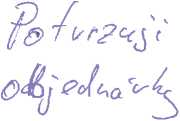 Potvrzuji
objednávky